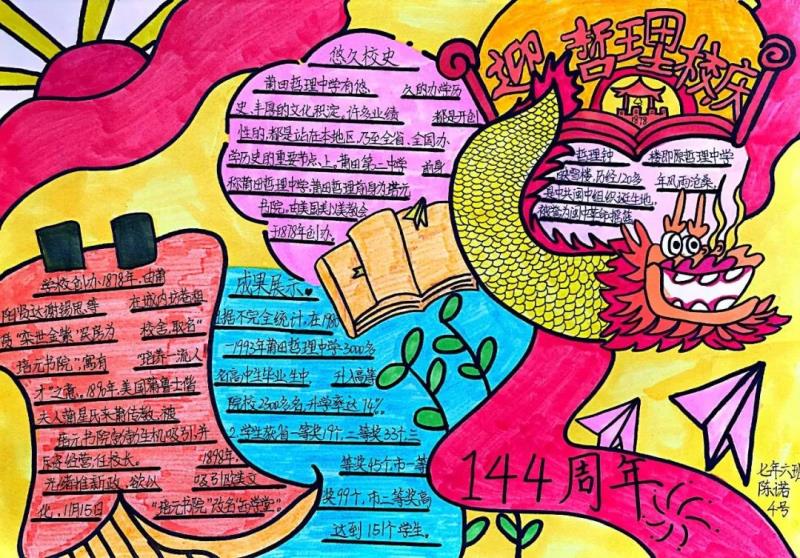 迎哲理校庆
1878
悠久校史
莆田哲理中学有悠 久的办学历
史,丰厚的文化积淀,许多业绩 都是开创
性的,都是站在本地区,乃至全省、全国办
学历史的重要节点上,莆田第二中学 前身
称莆田哲理中学,莆田哲理前身为培元
书院,由美国美以美教会
于1878年创办。
哲理钟 楼即原哲理中学
历经120多 年风雨沧桑,
是中共闽中组织诞生地,
被誉为闽中革命摇篮
学校创办1878年,由莆
阳贤达谢锡恩等 在城内坊巷租
质“奕世金紫”民房为 校舍,取名“
培元书院”,寓有 “培养一流人
才”之意。1896年,美国蒲鲁士偕
夫人蒲星氏来莆传教,被
培元书院勃勃生机吸引,并
任校长。 1898年
光绪推新政,欲以 西文
化,11月15日 “培元书院”改名
成果展示
据不完全统计,在1986
-1993年莆田哲理中学3000多
名高中生毕业生中 升入高等
院校2300多名,升学率达74%。
2.学生获省一等奖19个,二等奖33个,三
等奖45个,市一等
奖99个,市二等奖高
达到151个学生。
144周年
七年六班
陈诺
4号